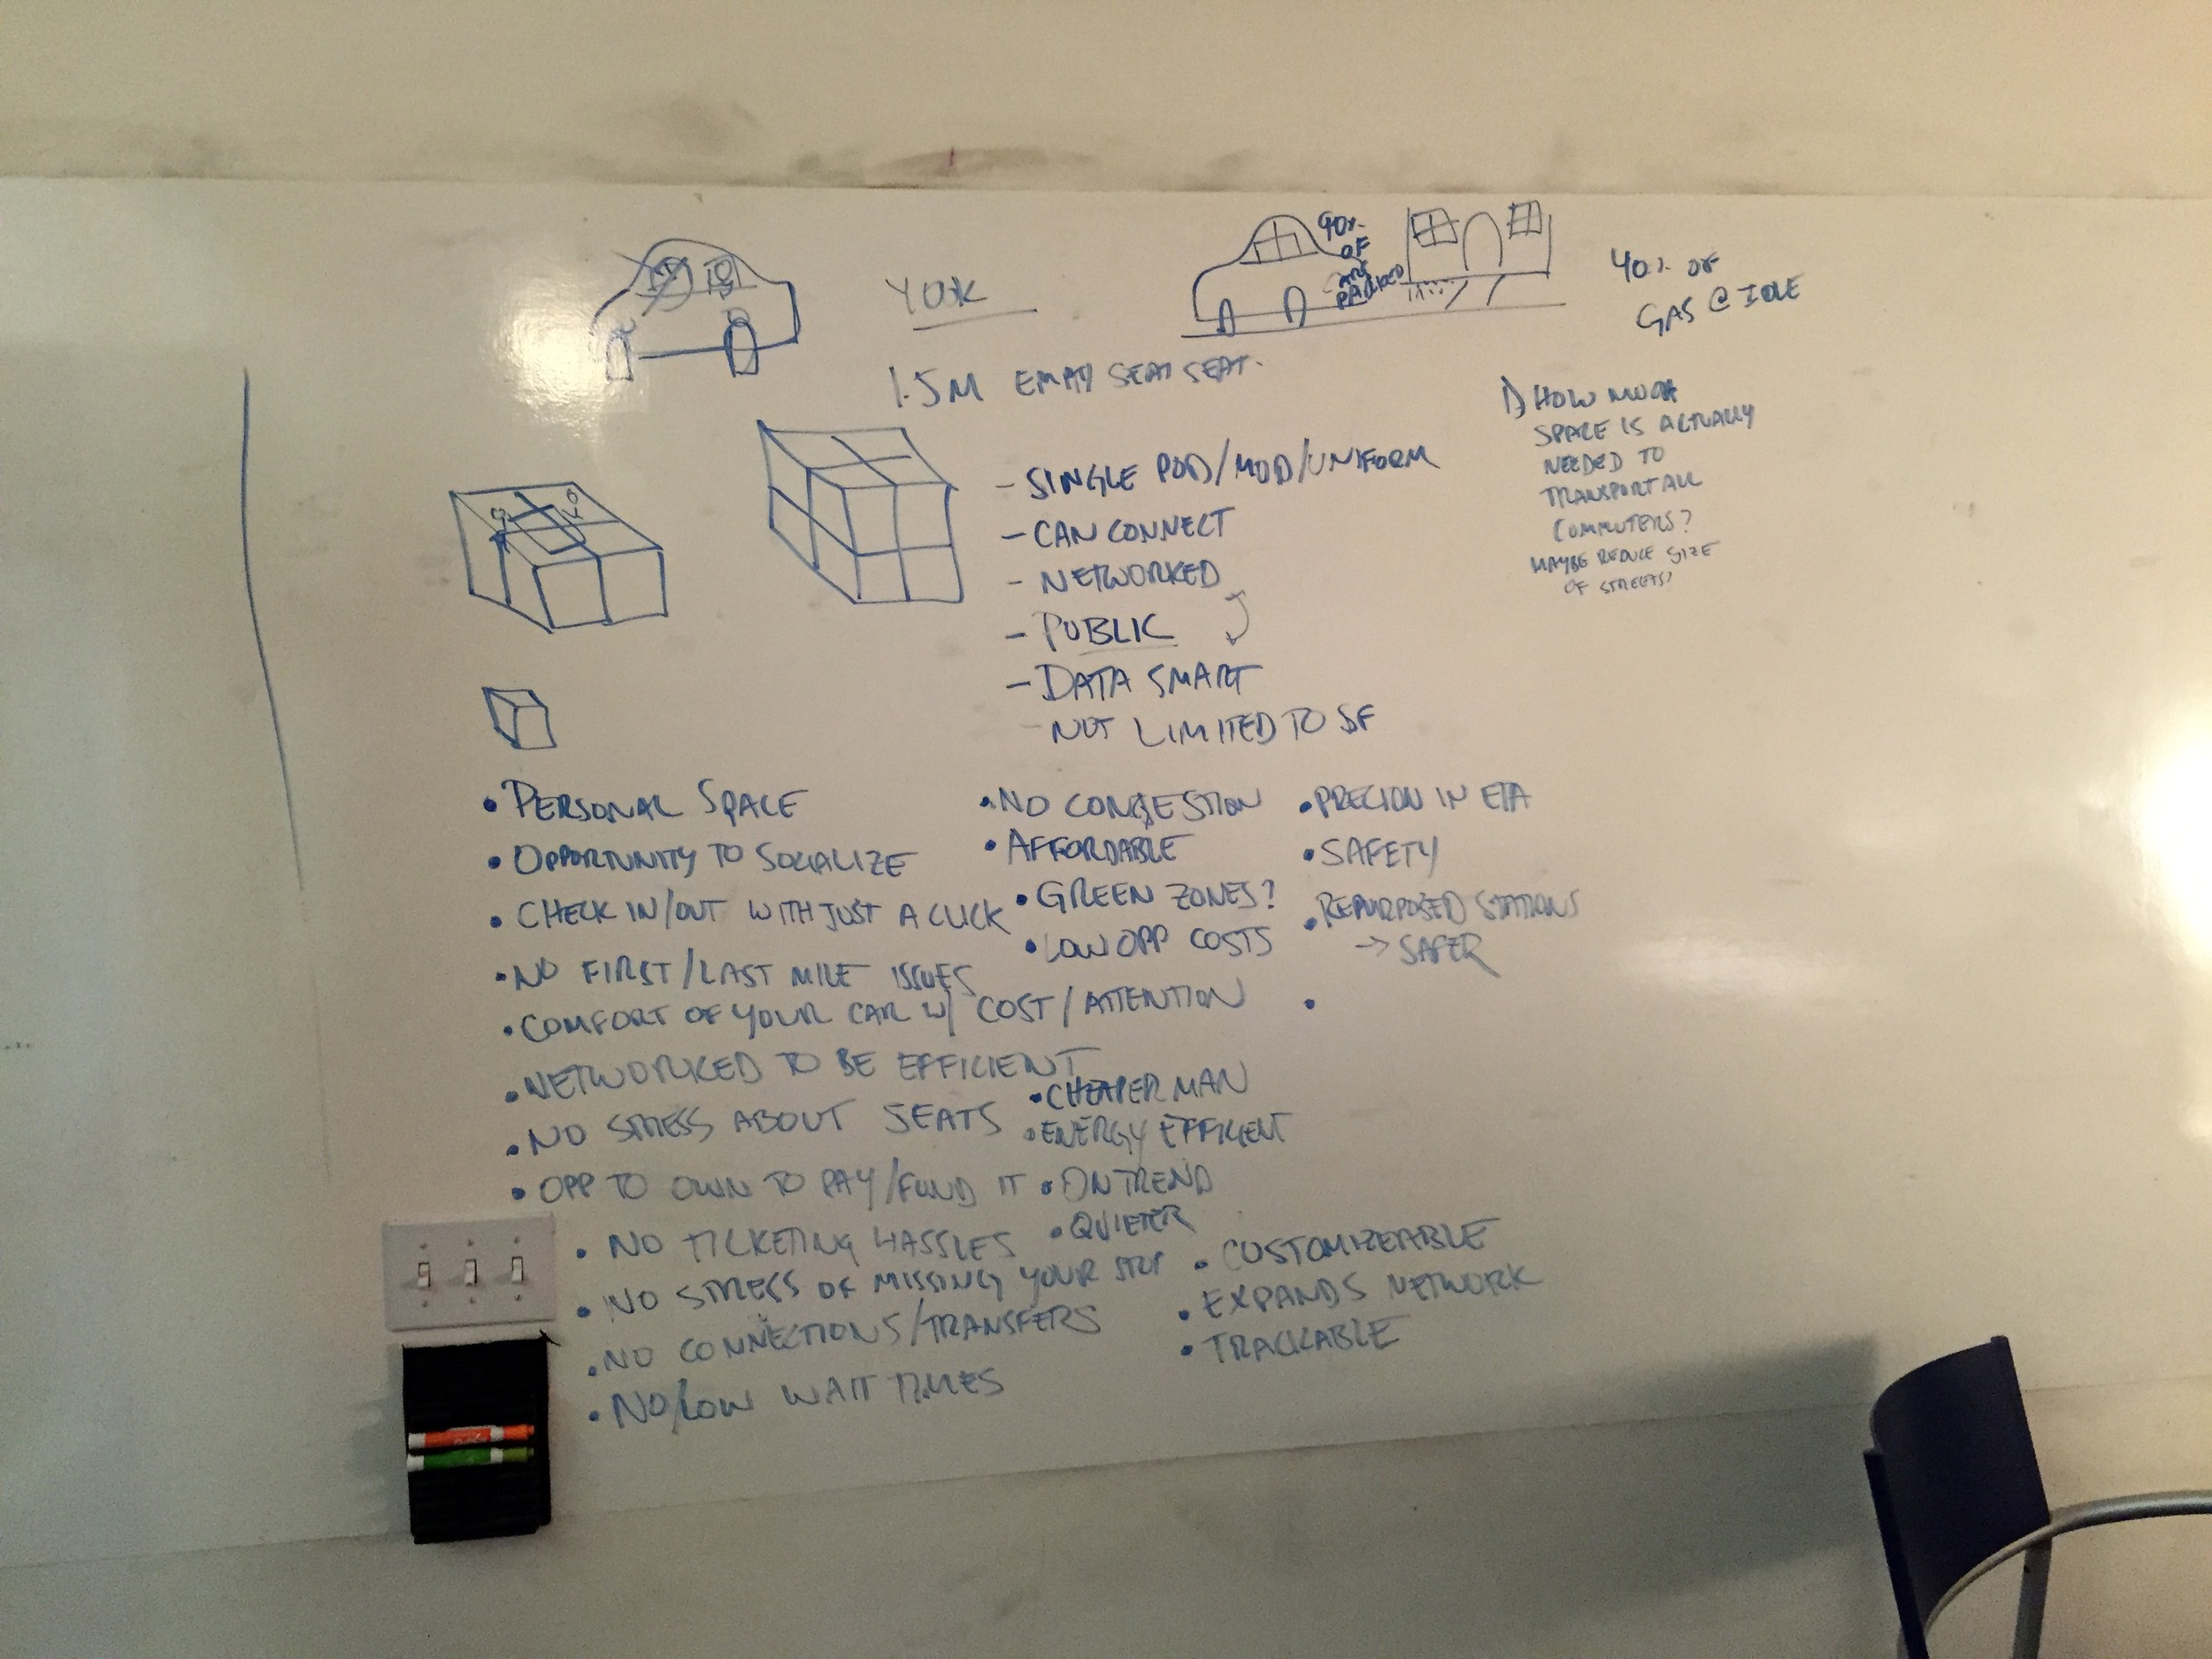 90% OF
ARE
PARKED
40% OF
GAS @ IDLE
1.5M EMPTY SEAT SEAT.
1) HOW MUCH
SPACE IS ACTUALLY
NEEDED TO
TRANSPORT ALL
COMMUTERS?
MAYBE REDUCE SIZE
OF STREETS?
- SINGLE POD/MOD/UNIFORM
- CAN CONNECT
- NETWORKED
- PUBLIC
- DATA SMART
- NOT LIMITED TO SF
• PERSONAL SPACE
• OPPORTUNITY TO SOCIALIZE
• CHECK IN/OUT WITH JUST A CLICK
• NO FIRST/LAST MILE ISSUES
• COMFORT OF YOUR CAR W/ COST/ATTENTION
• NETWORKED TO BE EFFICIENT
• NO STRESS ABOUT SEATS
• OPP TO OWN TO PAY/FUND IT
• NO TICKETING HASSLES
• NO STRESS OF MISSING YOUR STOP
• NO CONNECTIONS/TRANSFERS
• NO/LOW WAIT TIMES
• NO CONGESTION
• AFFORDABLE
• GREEN ZONES?
• LOW OPP COSTS
• CHEAPER MAN
• ENERGY EFFICIENT
• ON TREND
• QUIETER
• PRECION IN ETA
• SAFETY
• REPURPOSED STATIONS
→ SAFER
•
• CUSTOMIZEABLE
• EXPANDS NETWORK
• TRACKABLE